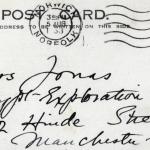 POST CARD.
ADDRESS TO BE WRITTEN ON THIS SIDE
NORWICH
NORFOLK
Jonas
Exploration
Hinde Stree
Manchester